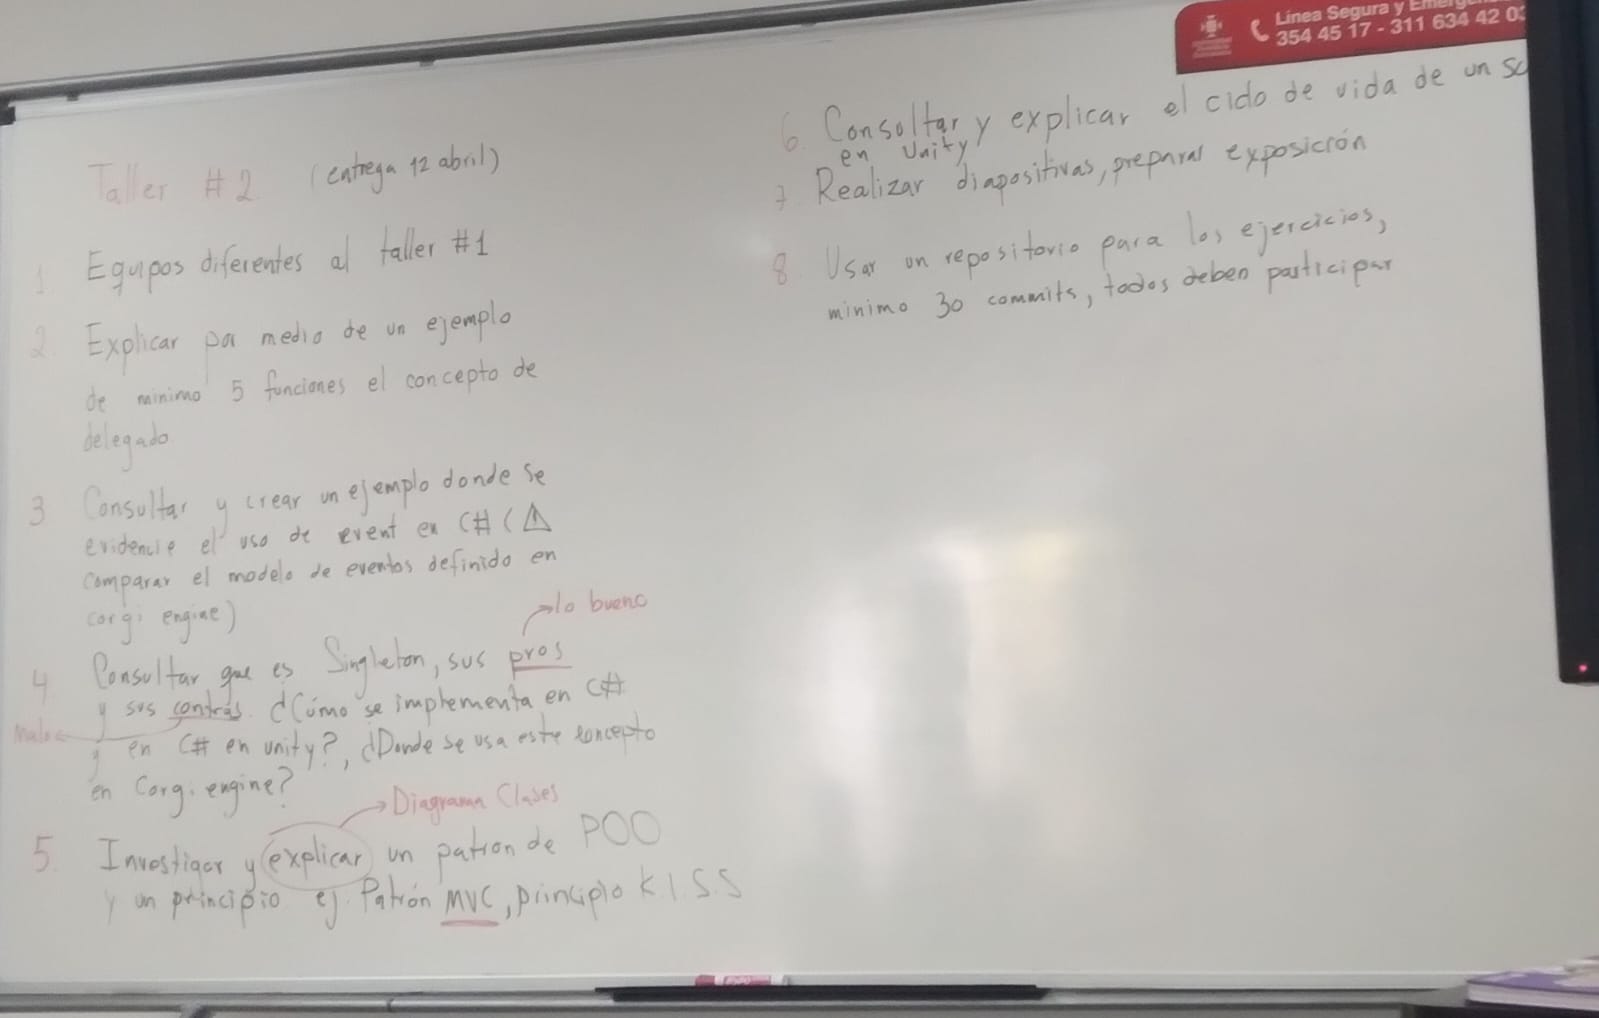 Linea Segura y Emerge
354 45 17 - 311 634 42 0
Taller #2 (entrega 12 abril)
1. Equipos diferentes al taller #1
2. Explicar por medio de un ejemplo
de minimo 5 funciones el concepto de
delegado
3 Consultar y crear un ejemplo donde se
evidencie el uso de event en C# (⚠
comparar el modelo de eventos definido en
corgi engine)
→lo bueno
4 Consultar que es Singleton, sus pros
y sus contras. ¿Cómo se implementa en C#
Malo
y en C# en unity?, ¿Donde se usa este concepto
en Corgi engine?
→Diagrama Clases
5. Investigar y explicar un patron de POO
y un principio ej. Patrón MVC, principio K.I.S.S
6. Consultar y explicar el ciclo de vida de un sc
en Unity
7. Realizar diapositivas, preparar exposición
8. Usar un repositorio para los ejercicios,
minimo 30 commits, todos deben participar